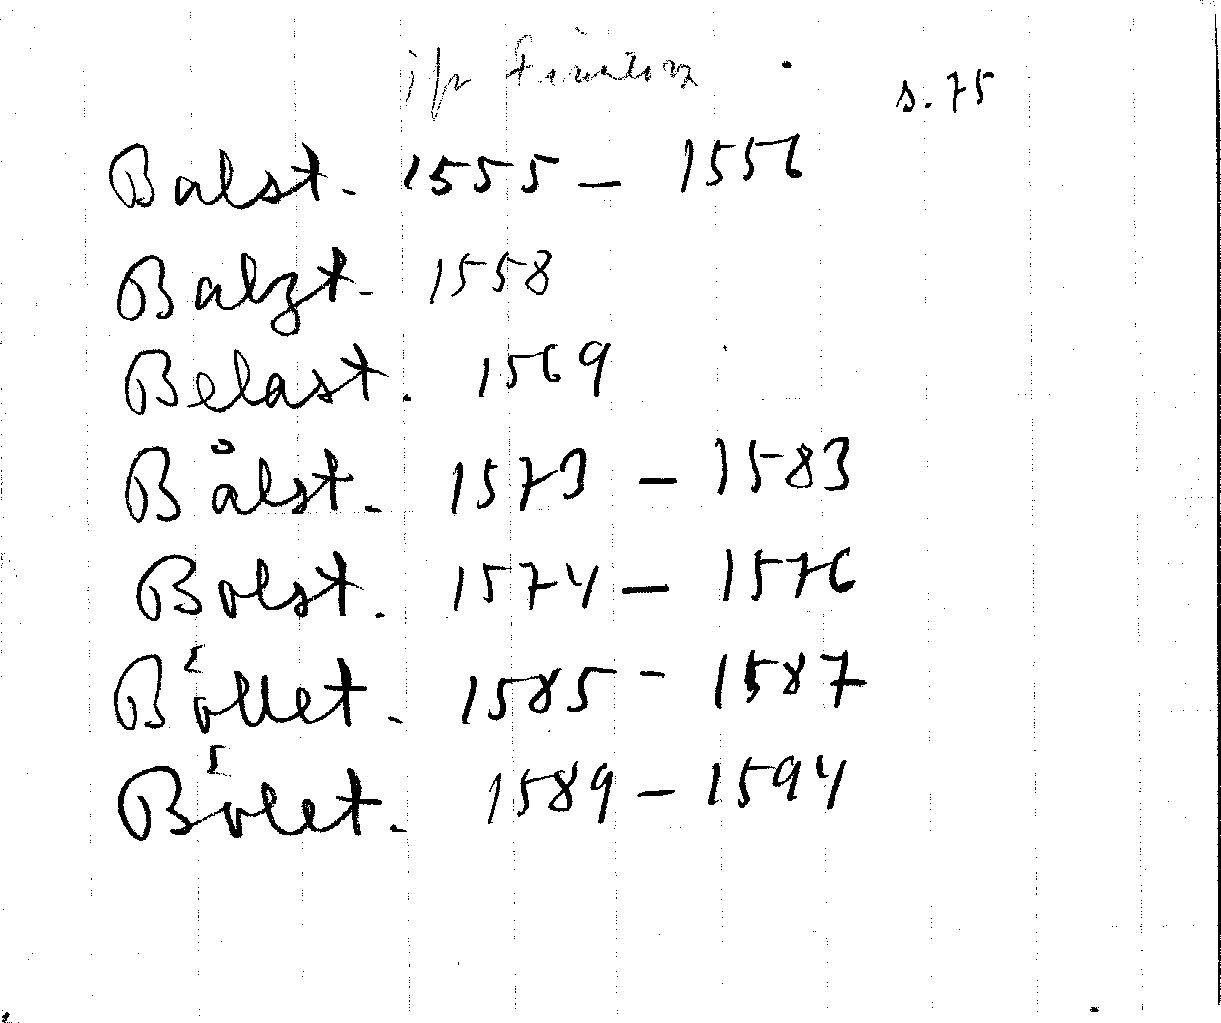 s. 75
Balst. 1555 – 1556
Balzt. 1558
Belast. 1569
Bålst. 1573 – 1583
Bolst. 1574 – 1576
Bållet. 1585 – 1587
Bålet. 1589 – 1594